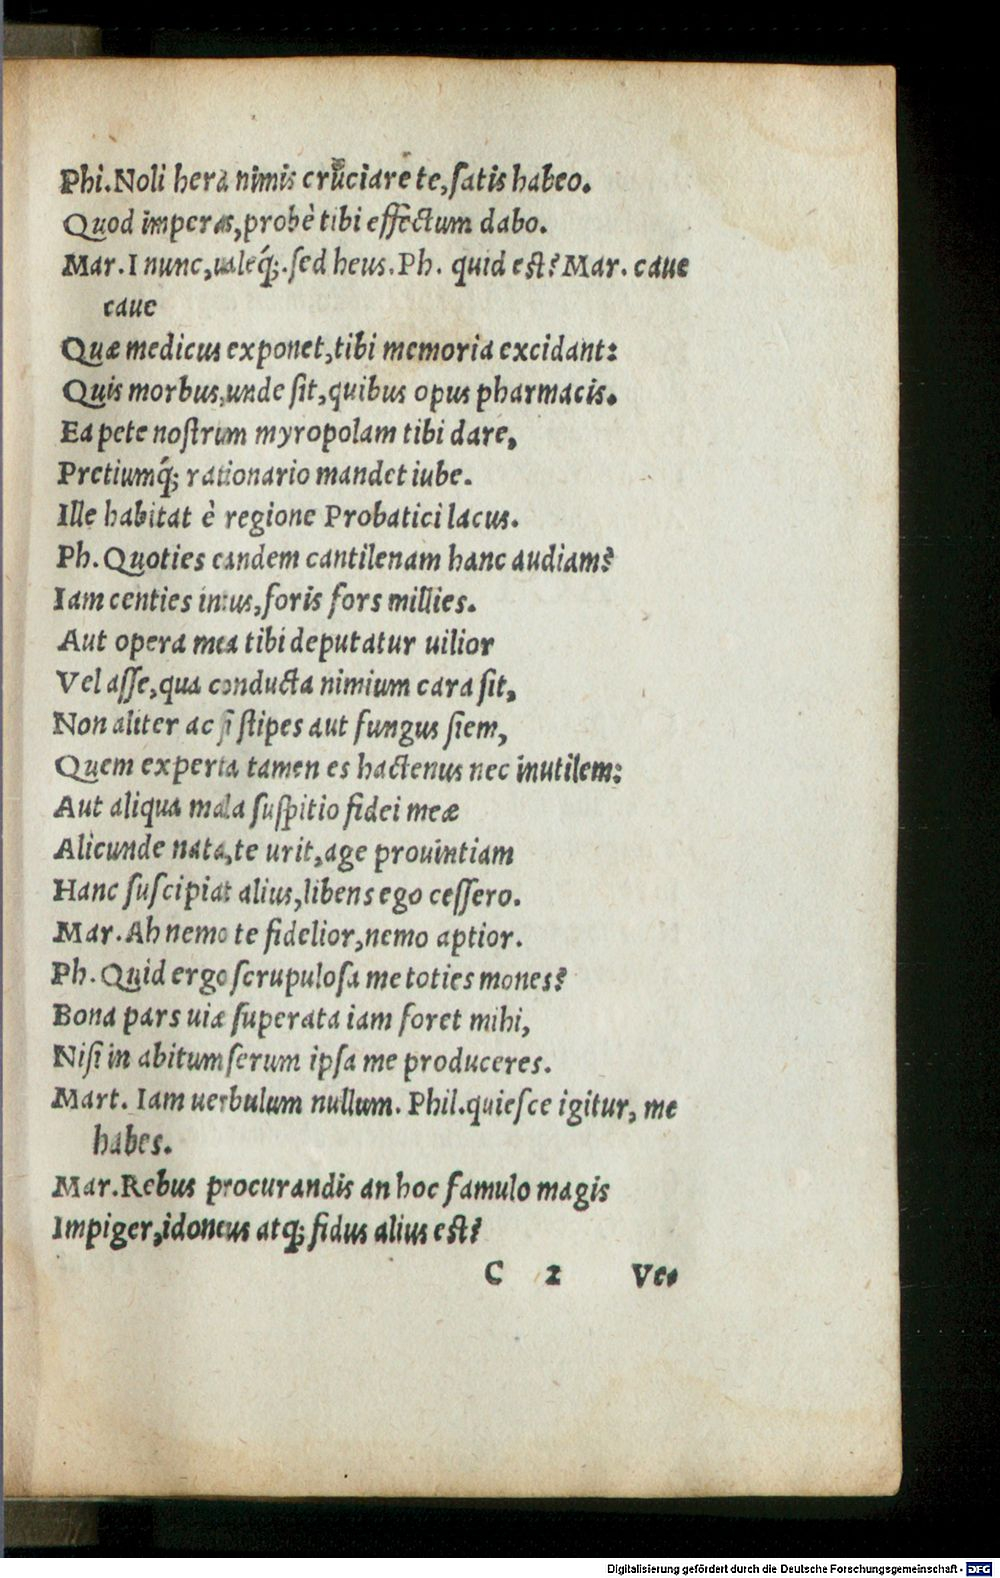 Phi. Noli hera nimis cruciare te, satis habeo.
Quod imperas, probè tibi effectum dabo.
Mar. I nunc, ualeq́;. sed heus. Ph. quid est? Mar. caue
caue
Quæ medicus exponet, tibi memoria excidant:
Quis morbus, unde sit, quibus opus pharmacis.
Ea pete nostrum myropolam tibi dare,
Pretiumq́; rationario mandet iube.
Ille habitat è regione Probatici lacus.
Ph. Quoties eandem cantilenam hanc audiam?
Iam centies intus, foris fors millies.
Aut opera mea tibi deputatur uilior
Vel asse, qua conducta nimium cara sit,
Non aliter ac si stipes aut fungus siem,
Quem experta tamen es hactenus nec inutilem:
Aut aliqua mala suspitio fidei meæ
Alicunde nata, te urit, age prouintiam
Hanc suscipiat alius, libens ego cessero.
Mar. Ah nemo te fidelior, nemo aptior.
Ph. Quid ergo scrupulosa me toties mones?
Bona pars uiæ superata iam foret mihi,
Nisi in abitum serum ipsa me produceres.
Mart. Iam uerbulum nullum. Phil. quiesce igitur, me
habes.
Mar. Rebus procurandis an hoc famulo magis
Impiger, idoneus atq; fidus alius est?
C 2 Ve-
Digitalisierung gefördert durch die Deutsche Forschungsgemeinschaft - DFG